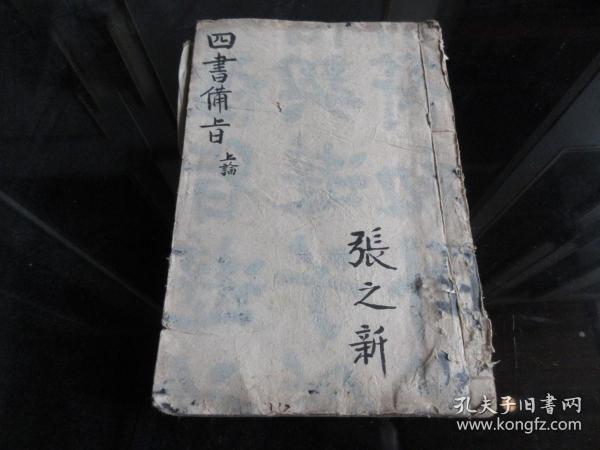 四書備旨
上論
張之新
孔夫子旧書网
www.kongfz.com